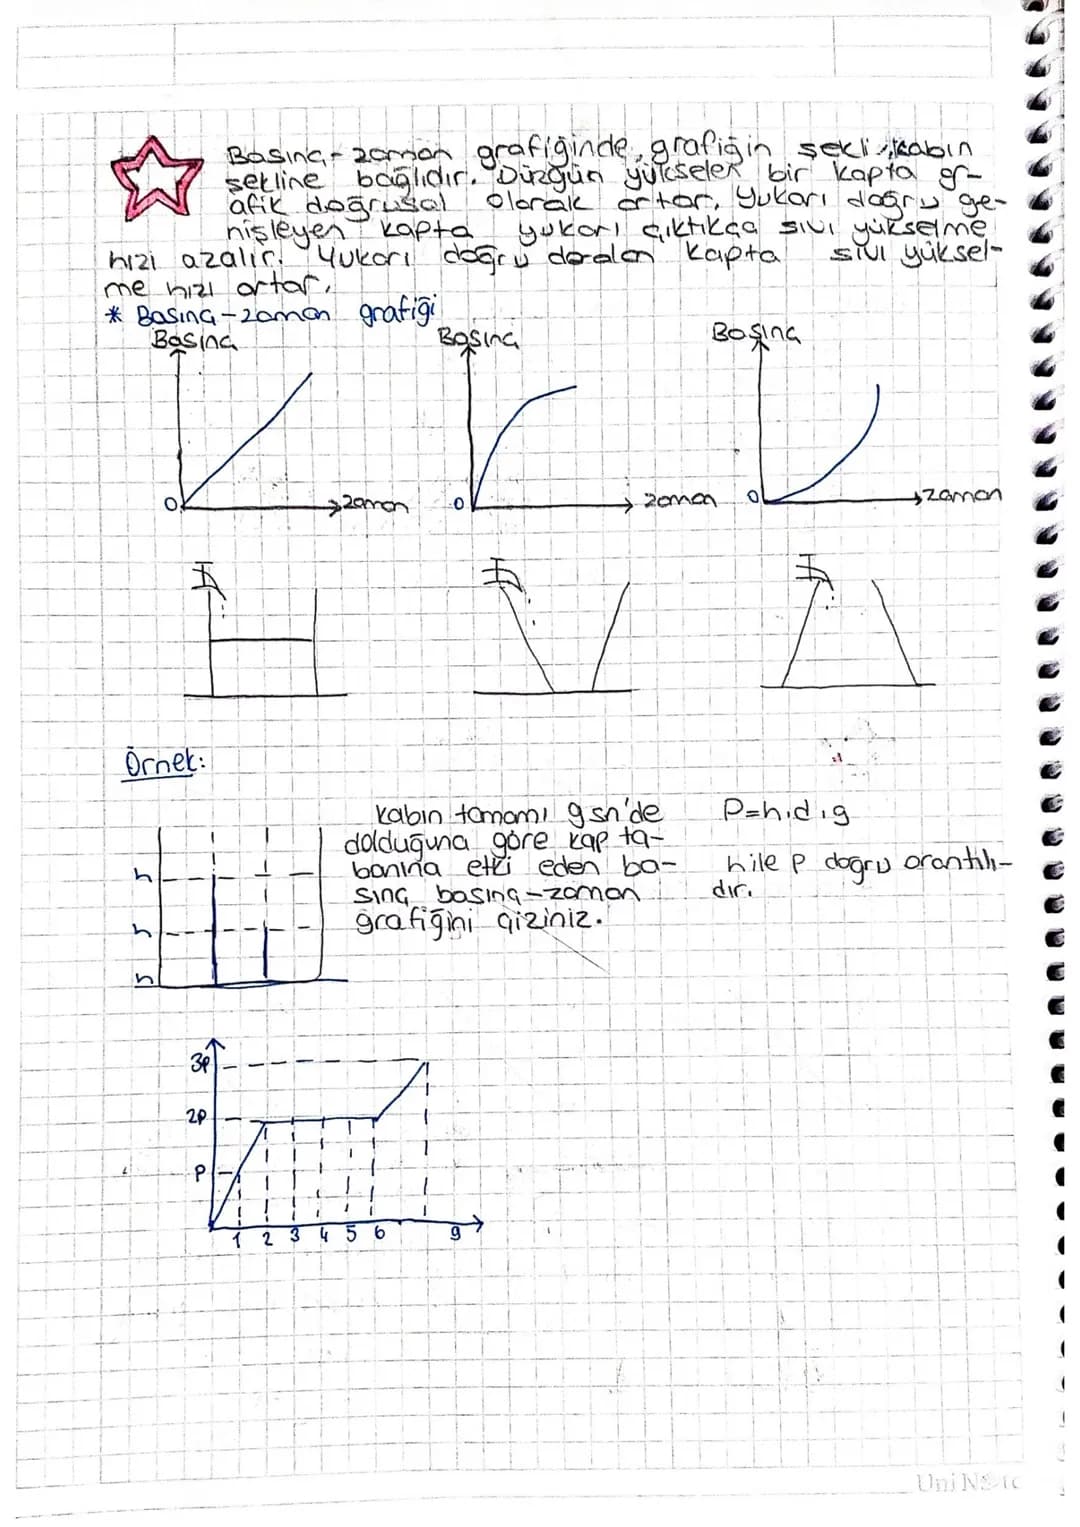 Basınç-zaman grafiğinde, grafiğin şekli, kabın
şekline bağlıdır. Düzgün yükselen bir kapta gr-
afik doğrusal olarak artar. Yukarı doğru ge-
nişleyen kapta yukarı çıktıkça sıvı yükselme
hızı azalır. Yukarı doğru daralan kapta sıvı yüksel-
me hızı artar.
* Basınç-zaman grafiği
Basınç Basınç Basınç
0 zaman 0 zaman 0 zaman
Örnek:
kabın tamamı 9 sn'de P=h.d.g
dolduğuna göre kap ta-
h banına etki eden ba- h ile P doğru orantılı-
sınç basınç-zaman dır.
h grafiğini çiziniz.
h
3P
2P
P
1 2 3 4 5 6 9
UniNote